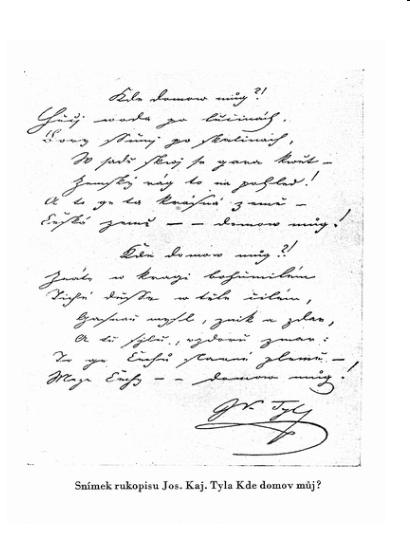 Kde domow můg?!
Hučj woda po lučinách,
Bory ssumj po skalinách,
W sadě skwj se gara kwět –
Zemský rág to na pohled!
A to ge ta krásná země –
Česká země – – domow můg!
Kde domow můg?!
Znáte w kragi bohumilém
Tiché dusse w těle čilém,
Gasnau mysl, znik a zdar,
A tu sylu, wzdoru zmar:
To ge Čechů slawné plémě –
Mezi Čechy – – domow můg!
JK Tyl
Snímek rukopisu Jos. Kaj. Tyla Kde domov můj?